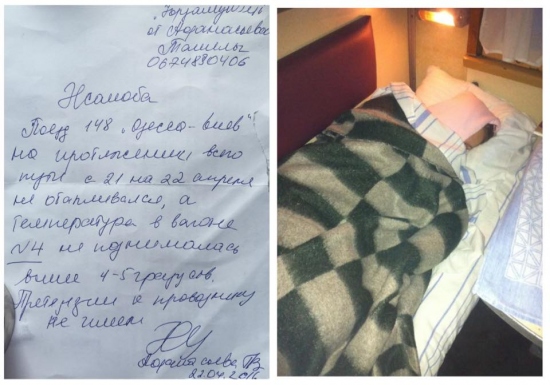 „Укрзалізниць
от Афанасьевой
Татьяны
0674880406
Жалоба
Поезд 148 „Одесса-Киев"
на протяжении всего
пути с 21 на 22 апреля
не отапливался, а
температура в вагоне
№4 не поднималась
выше 4-5 градусов.
Претензии к проводнику
не имею
Афанасьева
22.04.2016